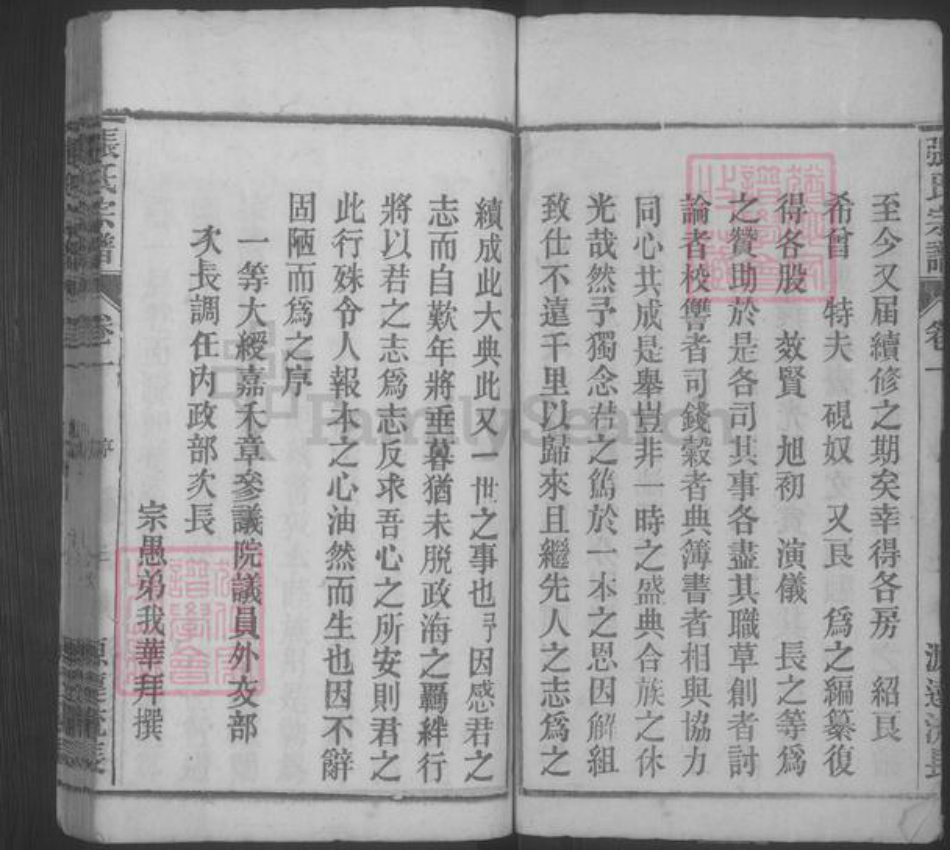 張氏宗譜 卷一 源遠流長
至今又屆續修之期矣幸得各房 紹艮
希曾 特夫 硯奴 又艮 爲之編纂復
得各股 效賢 旭初 演儀 長之等爲
之贊助於是各司其事各盡其職草創者討
論者校讐者司錢穀者典簿書者相與協力
同心共成是舉豈非一時之盛典合族之休
光哉然予獨念君之篤於一本之恩因解組
致仕不遠千里以歸來且繼先人之志爲之
續成此大典此又一世之事也予因感君之
志而自歎年將垂暮猶未脫政海之羈絆行
將以君之志爲志反求吾心之所安則君之
此行殊令人報本之心油然而生也因不辭
固陋而爲之序
一等大綬嘉禾章參議院議員外交部
次長調任內政部次長
宗愚弟我華拜撰
張氏宗譜 卷一 序 源遠流長
FamilySearch